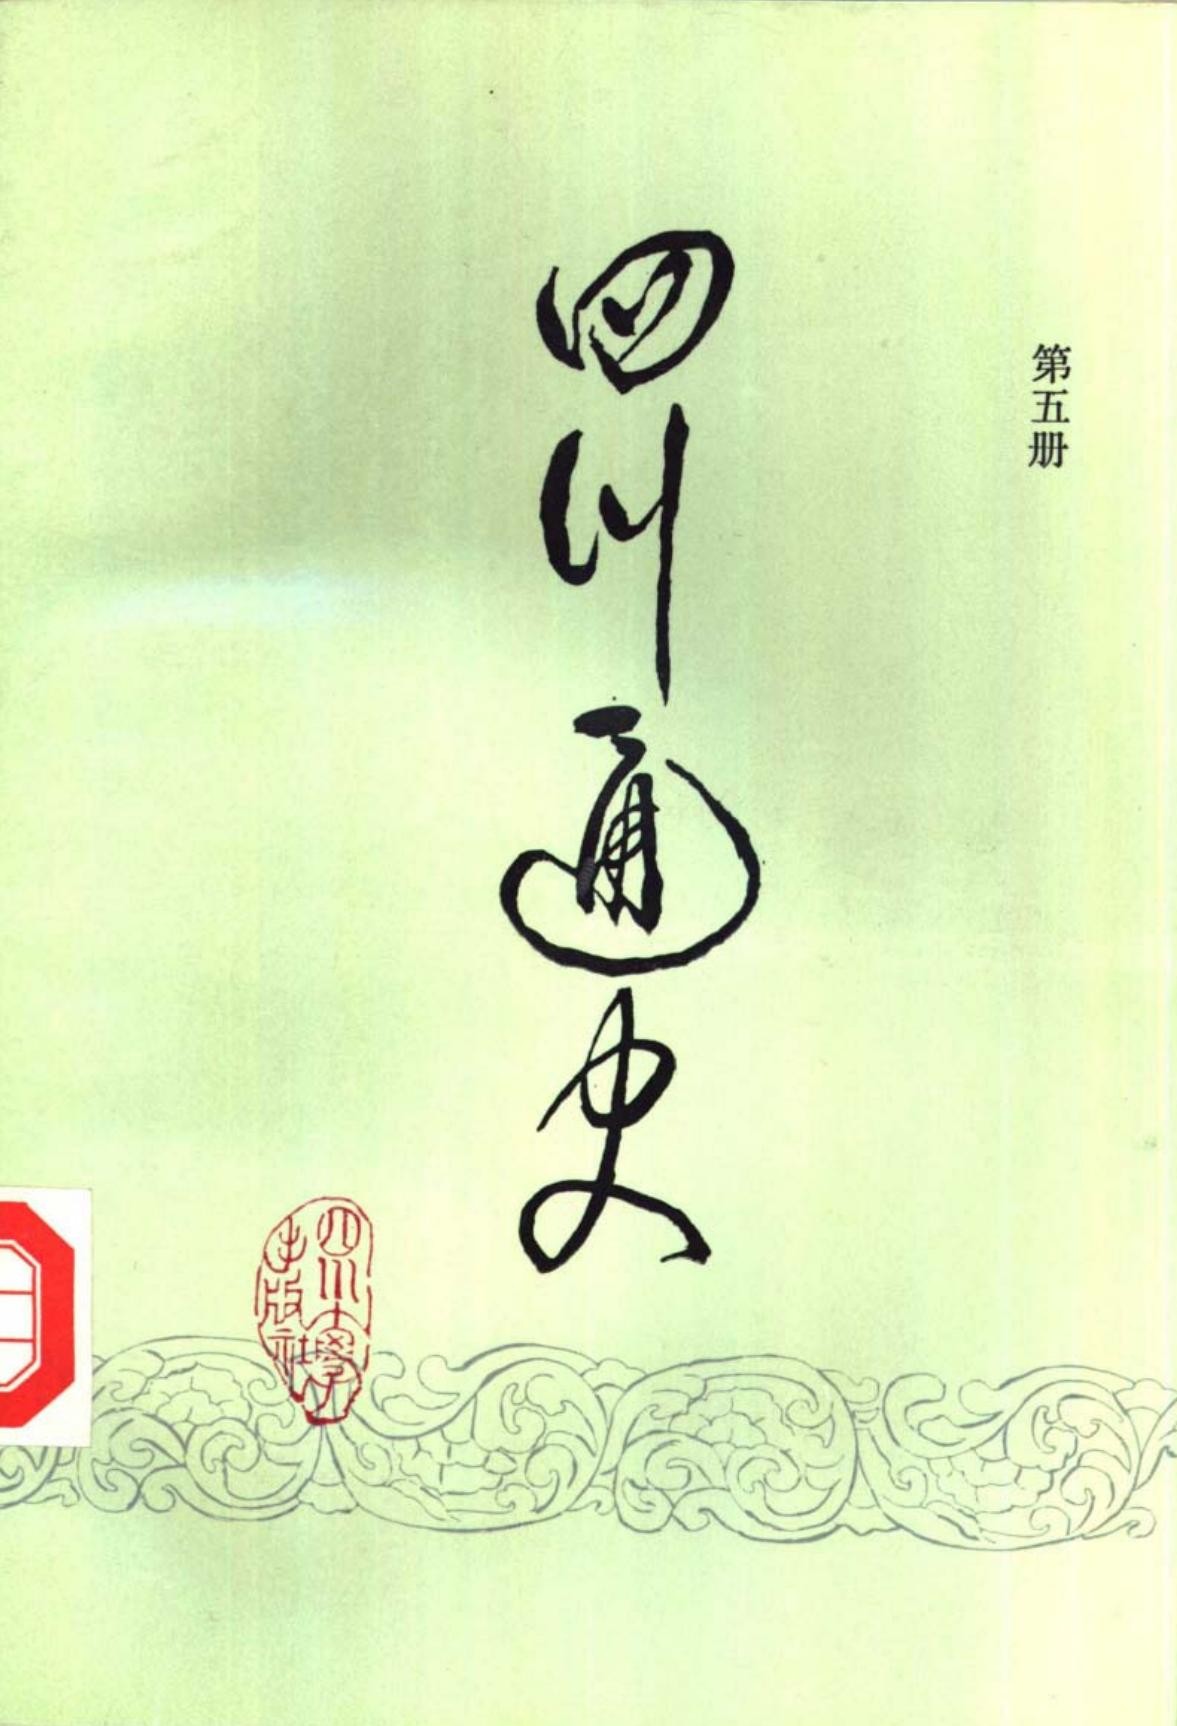 第五册
四川通史
四川大學
出版社